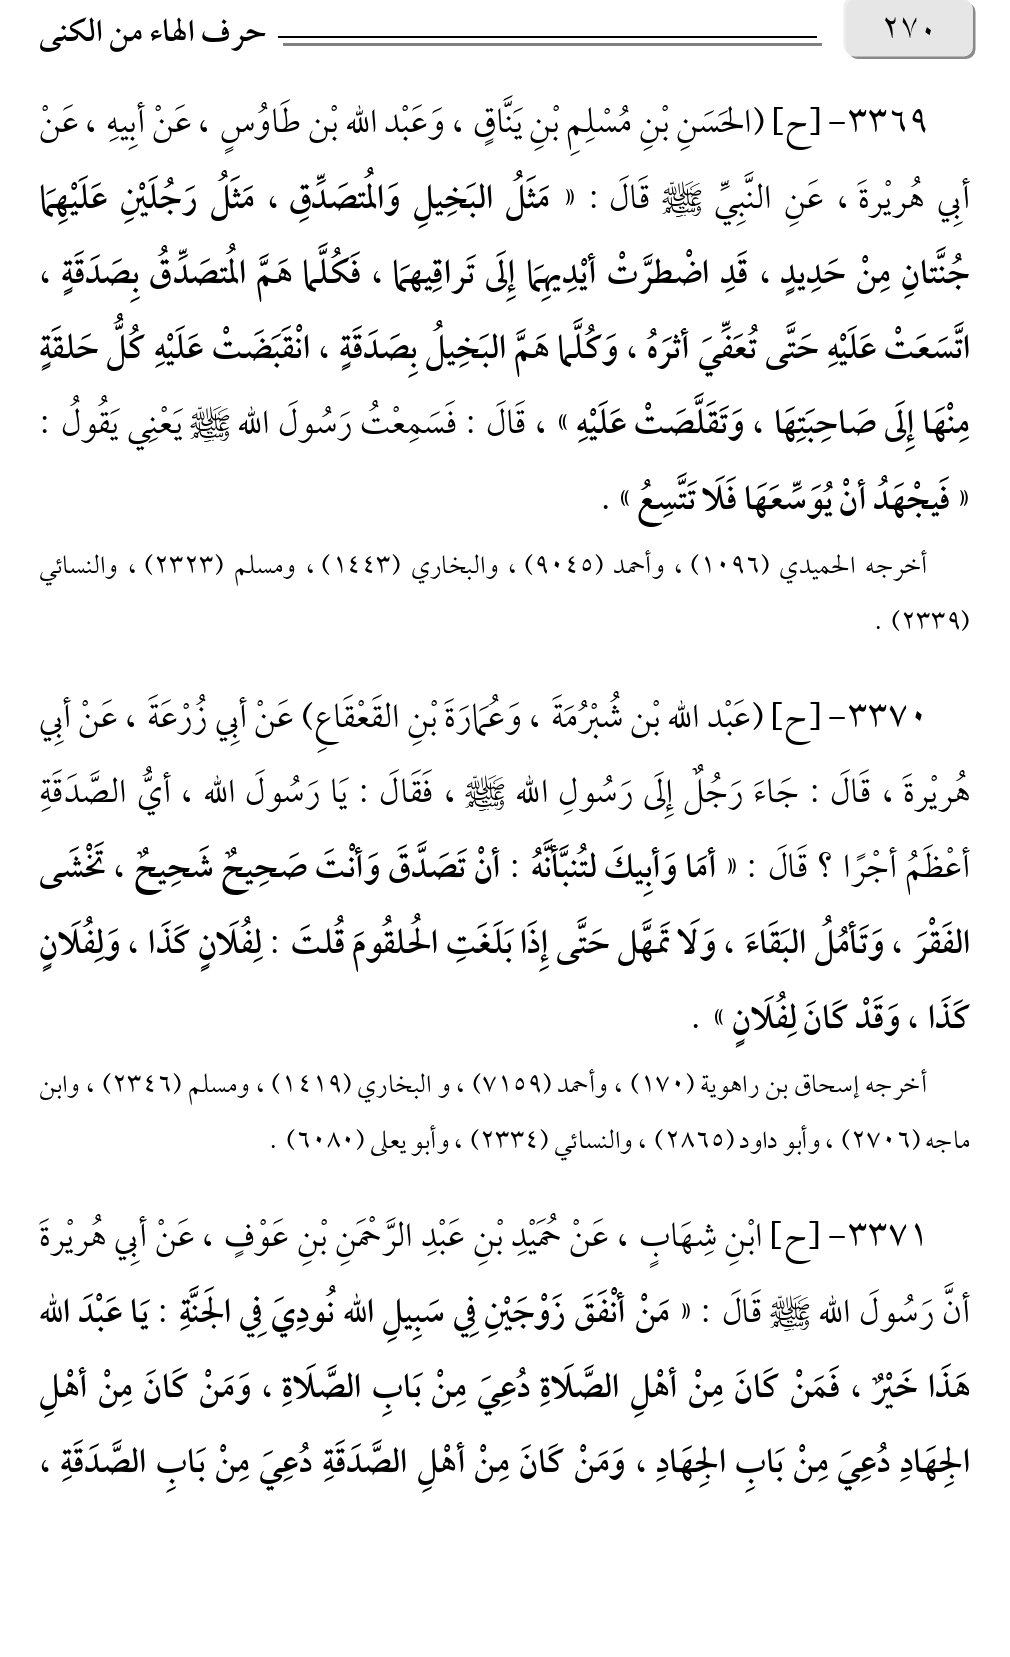 ٢٧٠
حرف الهاء من الكنى
٣٣٦٩- [ح] (الحَسَنِ بْنِ مُسْلِمِ بْنِ يَنَّاقٍ ، وَعَبْد الله بْن طَاوُسٍ ، عَنْ أبِيهِ ، عَنْ
أبِي هُريْرةَ ، عَنِ النَّبِيِّ ﷺ قَالَ : « مَثَلُ البَخِيلِ وَالمُتصَدِّقِ ، مَثَلُ رَجُلَيْنِ عَلَيْهِمَا
جُنَّتانِ مِنْ حَدِيدٍ ، قَدِ اضْطرَّتْ أيْدِيهِمَا إِلَى تَراقِيهمَا ، فَكُلَّما هَمَّ المُتصَدِّقُ بِصَدَقَةٍ ،
اتَّسَعَتْ عَلَيْهِ حَتَّى تُعَفِّيَ أثرَهُ ، وَكُلَّما هَمَّ البَخِيلُ بِصَدَقَةٍ ، انْقَبَضَتْ عَلَيْهِ كُلُّ حَلقَةٍ
مِنْهَا إِلَى صَاحِبَتِهَا ، وَتَقَلَّصَتْ عَلَيْهِ » ، قَالَ : فَسَمِعْتُ رَسُولَ الله ﷺ يَعْنِي يَقُولُ :
« فَيجْهَدُ أنْ يُوَسِّعَهَا فَلَا تَتَّسِعُ » .
أخرجه الحميدي (١٠٩٦) ، وأحمد (٩٠٤٥) ، والبخاري (١٤٤٣) ، ومسلم (٢٣٢٣) ، والنسائي
(٢٣٣٩) .
٣٣٧٠- [ح] (عَبْد الله بْن شُبْرُمَةَ ، وَعُمَارَةَ بْنِ القَعْقَاعِ) عَنْ أبِي زُرْعَةَ ، عَنْ أبِي
هُريْرةَ ، قَالَ : جَاءَ رَجُلٌ إِلَى رَسُولِ الله ﷺ ، فَقَالَ : يَا رَسُولَ الله ، أيُّ الصَّدَقَةِ
أعْظَمُ أجْرًا ؟ قَالَ : « أمَا وَأبِيكَ لتُنبَّأنَّهُ : أنْ تَصَدَّقَ وَأنْتَ صَحِيحٌ شَحِيحٌ ، تَخْشَى
الفَقْرَ ، وَتَأمُلُ البَقَاءَ ، وَلَا تَمهَّل حَتَّى إِذَا بَلَغَتِ الحُلقُومَ قُلتَ : لِفُلَانٍ كَذَا ، وَلِفُلَانٍ
كَذَا ، وَقَدْ كَانَ لِفُلَانٍ » .
أخرجه إسحاق بن راهوية (١٧٠) ، وأحمد (٧١٥٩) ، و البخاري (١٤١٩) ، ومسلم (٢٣٤٦) ، وابن
ماجه (٢٧٠٦) ، وأبو داود (٢٨٦٥) ، والنسائي (٢٣٣٤) ، وأبو يعلى (٦٠٨٠) .
٣٣٧١- [ح] ابْنِ شِهَابٍ ، عَنْ حُمَيْدِ بْنِ عَبْدِ الرَّحْمَنِ بْنِ عَوْفٍ ، عَنْ أبِي هُريْرةَ
أنَّ رَسُولَ الله ﷺ قَالَ : « مَنْ أنْفَقَ زَوْجَيْنِ فِي سَبِيلِ الله نُودِيَ فِي الجَنَّةِ : يَا عَبْدَ الله
هَذَا خَيْرٌ ، فَمَنْ كَانَ مِنْ أهْلِ الصَّلَاةِ دُعِيَ مِنْ بَابِ الصَّلَاةِ ، وَمَنْ كَانَ مِنْ أهْلِ
الجِهَادِ دُعِيَ مِنْ بَابِ الجِهَادِ ، وَمَنْ كَانَ مِنْ أهْلِ الصَّدَقَةِ دُعِيَ مِنْ بَابِ الصَّدَقَةِ ،